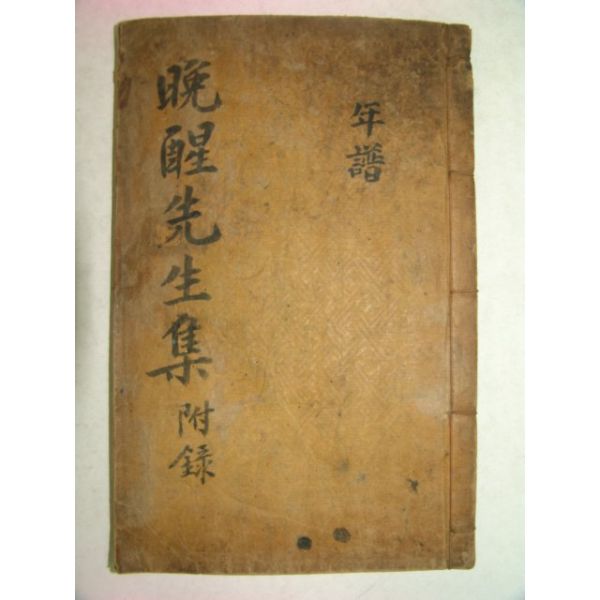 晩醒先生集 附録
年譜